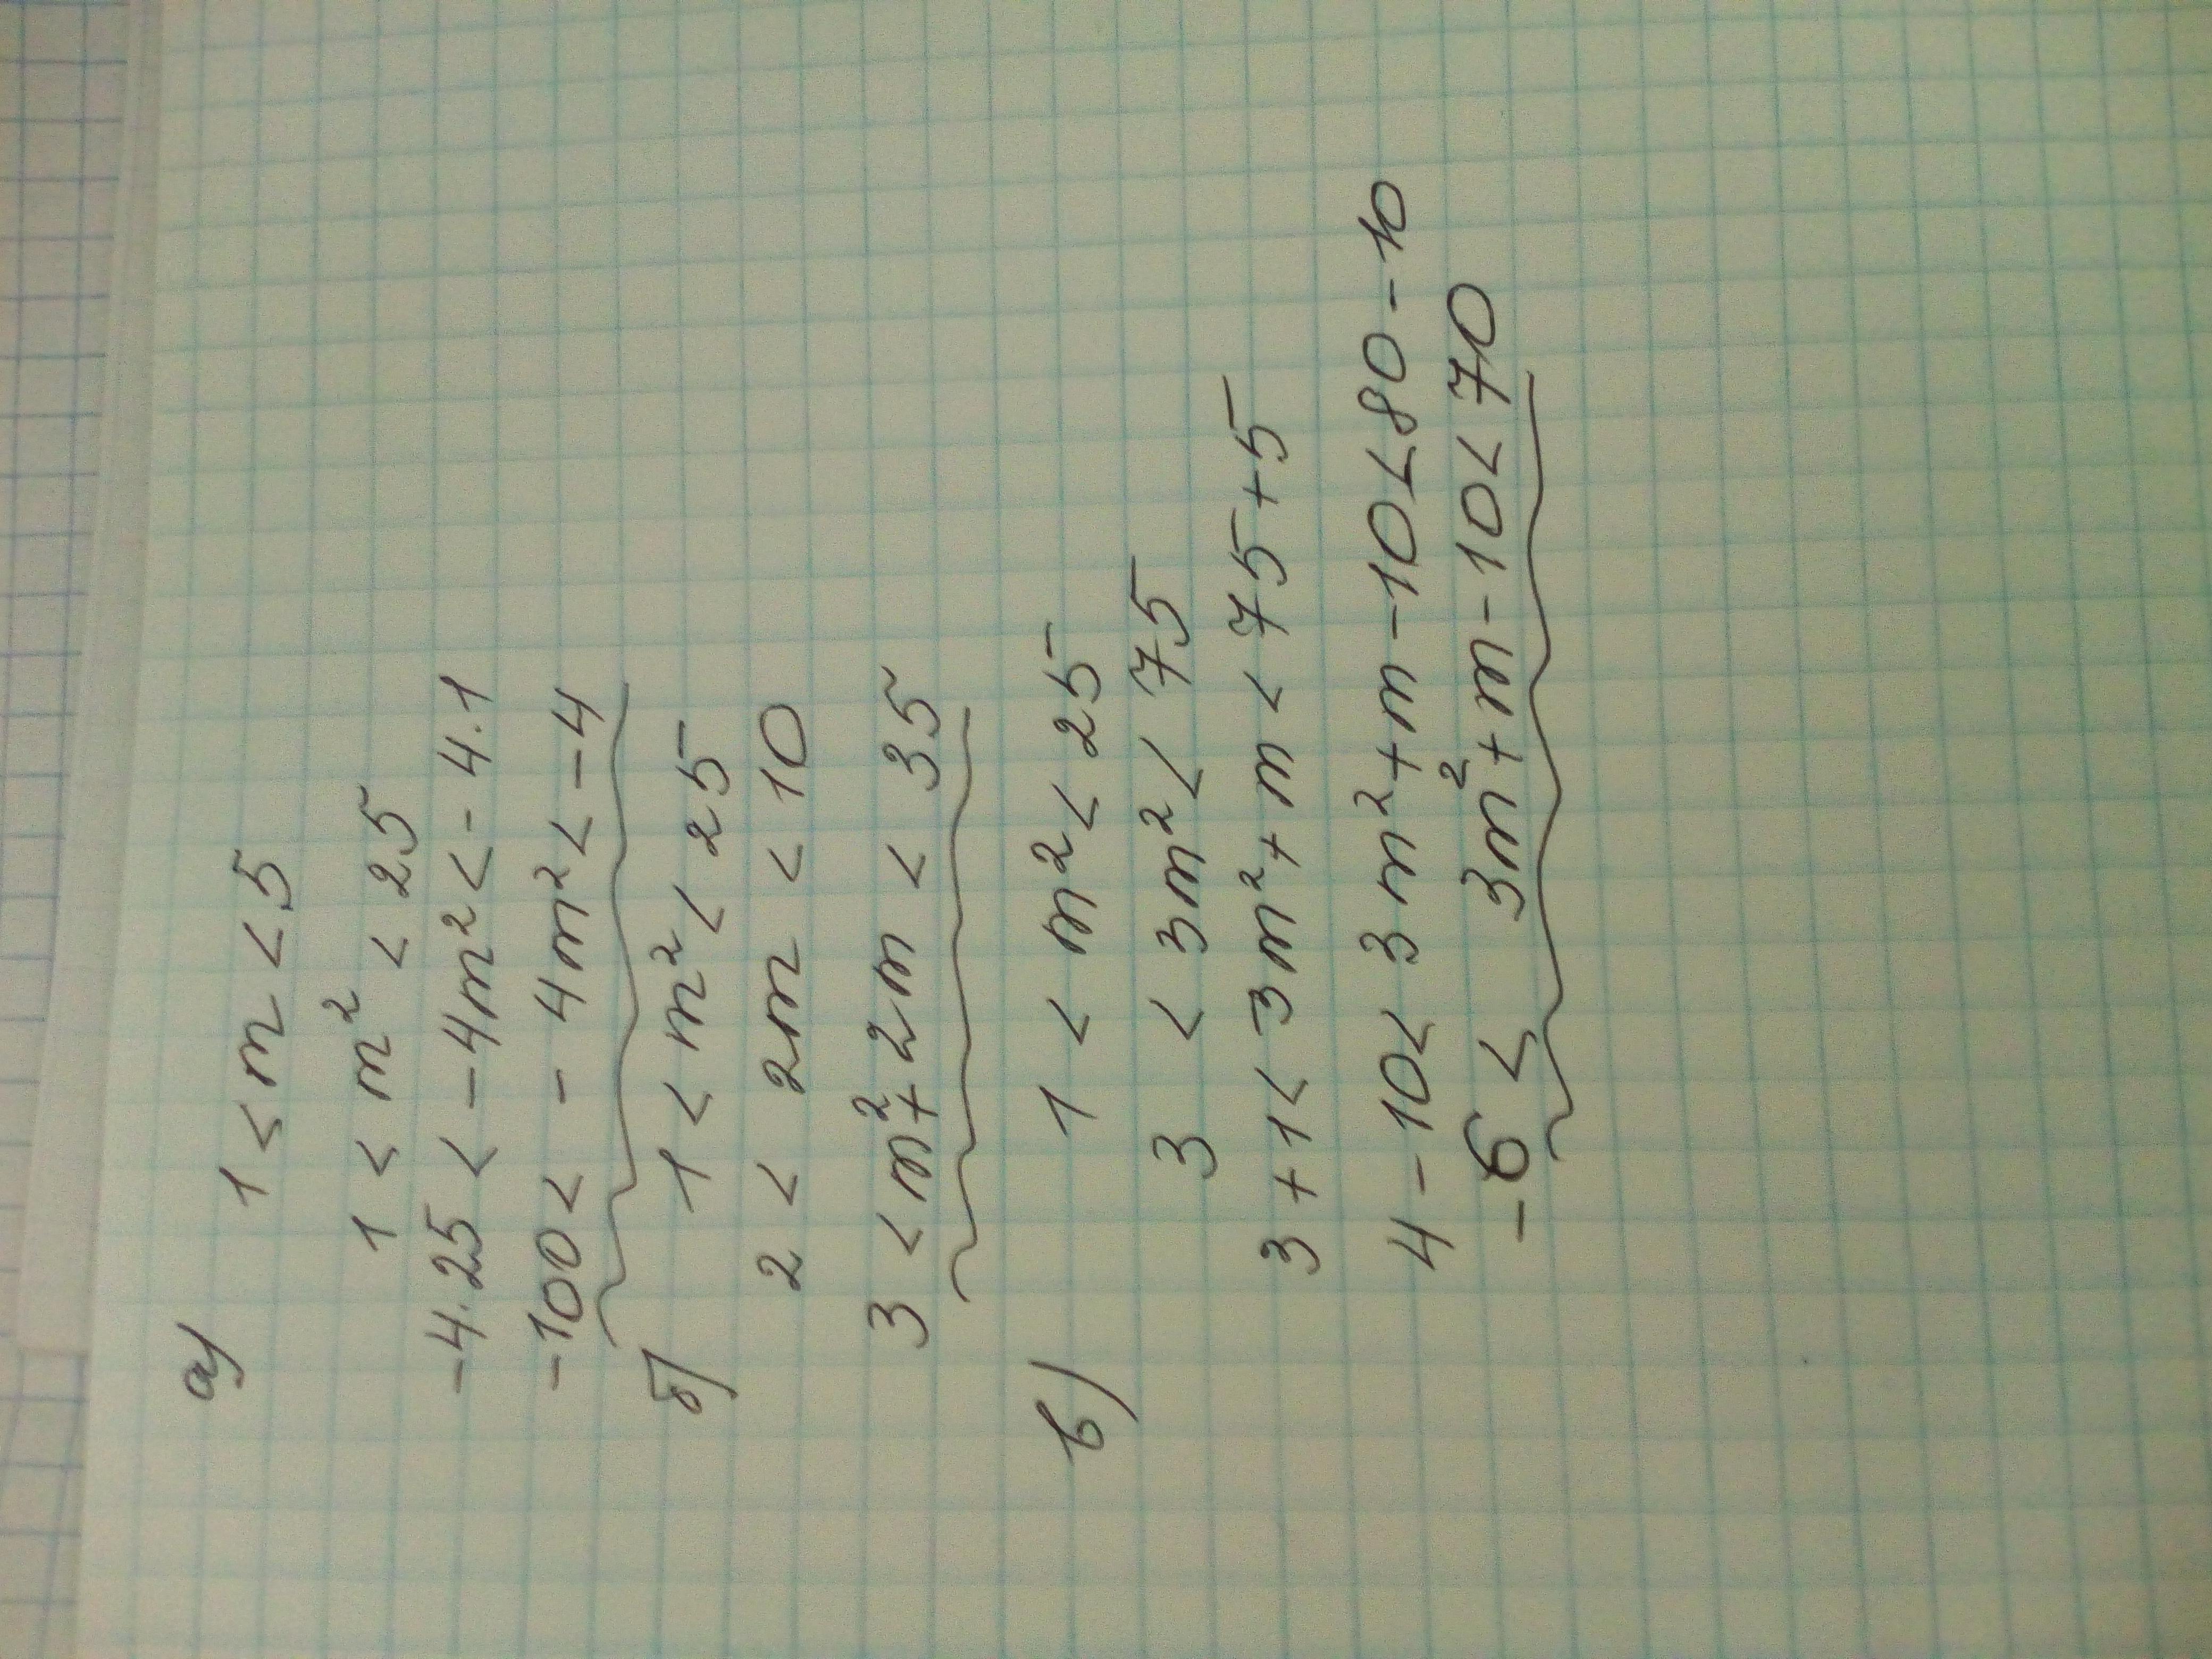 а)
1 < m < 5
1 < m² < 25
-4·25 < -4m² < -4·1
-100 < -4m² < -4
б)
1 < m² < 25
2 < 2m < 10
3 < m² + 2m < 35
в)
1 < m² < 25
3 < 3m² < 75
3 + 1 < 3m² + m < 75 + 5
4 - 10 < 3m² + m - 10 < 80 - 10
-6 < 3m² + m - 10 < 70